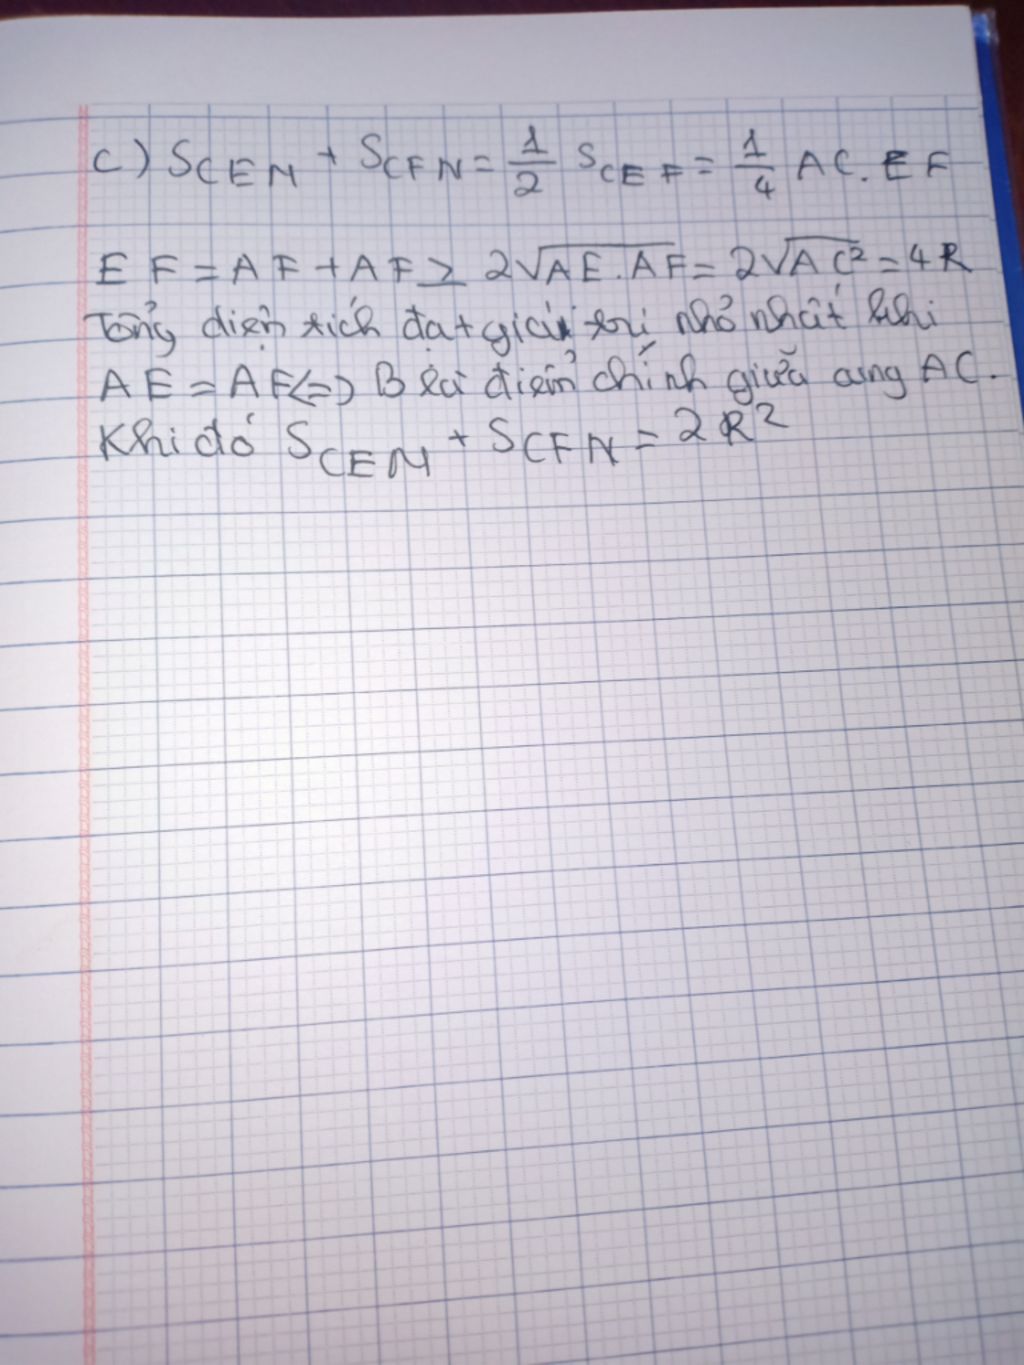 c) S_CEM + S_CFN = 1/2 S_CEF = 1/4 AC. EF
EF = AF + AF ≥ 2√AE.AF = 2√AC² = 4R
Tổng diện tích đạt giái trị nhỏ nhất khi
AE = AF <=> B là điểm chính giữa cung AC.
Khi đó S_CEM + S_CFN = 2R²